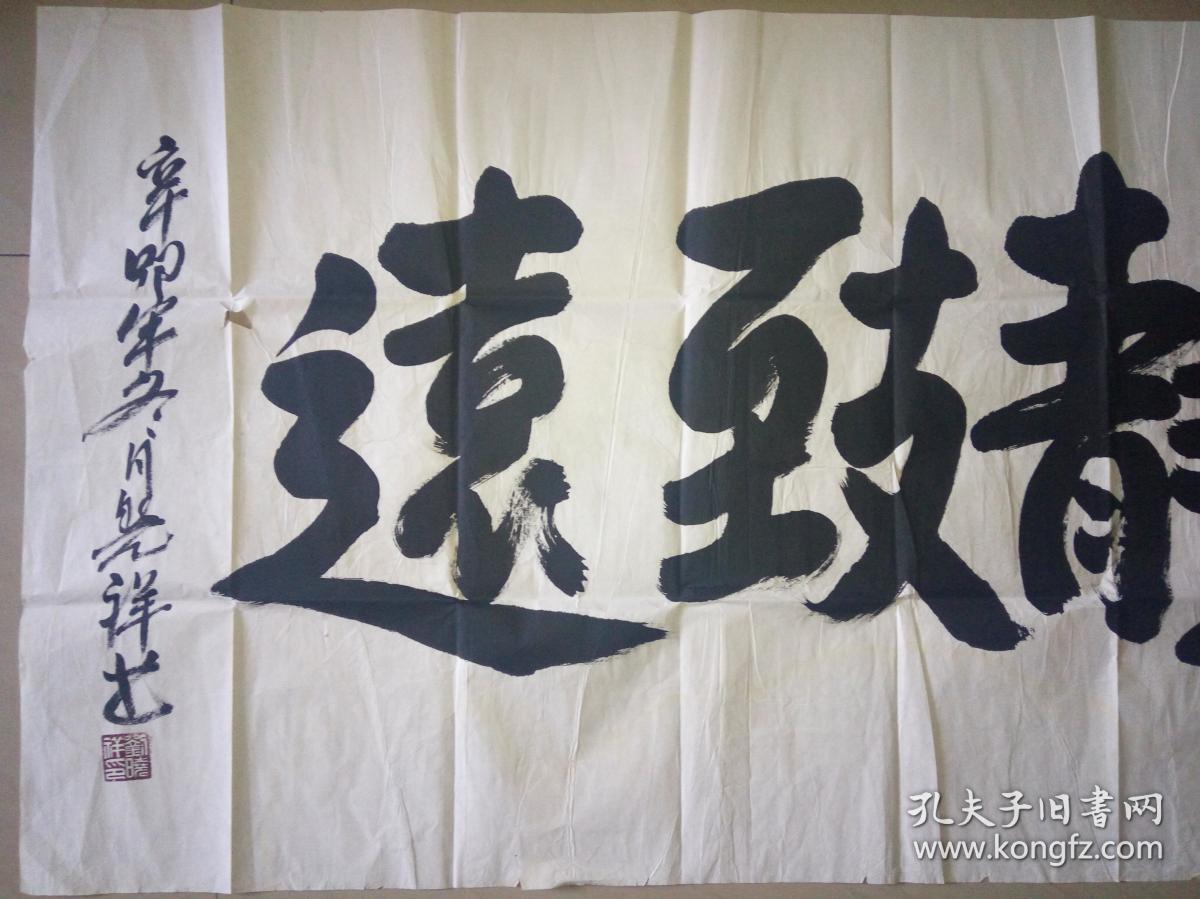 靜致遠
辛卯年冬月曉祥书
劉曉祥印
孔夫子旧書网
www.kongfz.com